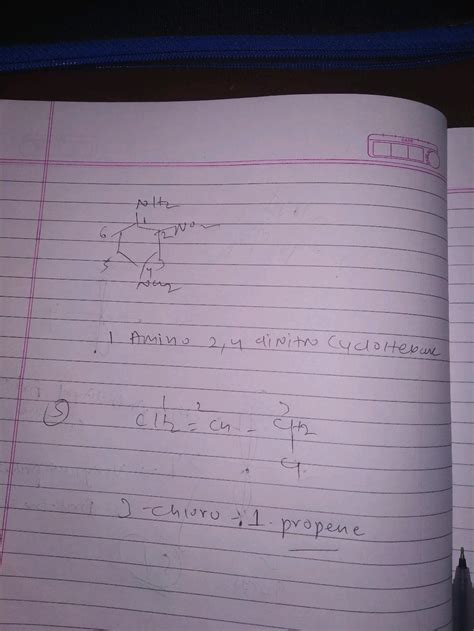 NH2
1
6 2 NO2
5 3
4
NO2
1 Amino 2,4 dinitro CycloHexane
1 2 3
5 CH2 = CH - CH2
Cl
3-chloro-1-propene